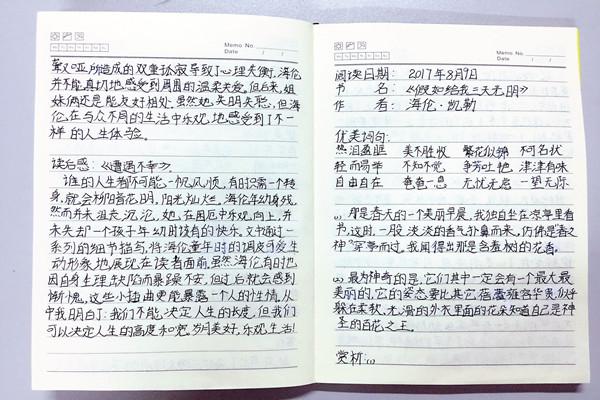 Memo No.
Date / /
聋哑所造成的双重孤寂导致了心理失衡,海伦
并不能真切地感受到周围的温柔关爱。但后来,姐
妹俩还是能友好相处,虽然她失明失聪,但海
伦在与众不同的生活中乐观地感受到了不一
样的人生体会。
读后感:《遭遇不幸》。
谁的人生都不可能一帆风顺,有时只需一个转
身,就会柳暗花明,阳光灿烂。海伦年幼身残,
然而并未沮丧沉沦,她在困厄中乐观向上,并
未失却一个孩子年幼时该有的快乐。文中通过一
系列的细节描写,将海伦童年时的调皮可爱生
动形象地展现在读者面前。虽然海伦有时也
因自身生理缺陷而暴躁不安,但过后就会感到
惭愧。这些小插曲更能暴露一个人的性情,从
中我明白了:我们不能决定人生的长度,但我们
可以决定人生的高度和宽。岁月美好,乐观生活!
Memo No.
Date / /
阅读日期: 2017年8月9日
书 名:《假如给我三天光明》
作 者: 海伦·凯勒
优美词句:
热泪盈眶 美不胜收 繁花似锦 不可名状
轻而易举 不知不觉 争芳吐艳 津津有味
自由自在 奄奄一息 无忧无虑 一望无际
(1). 那是春天的一个美丽早晨,我独自坐在凉亭里看
书,这时,一股淡淡的香气扑鼻而来,仿佛是“春之
神”穿亭而过,我闻得出那是含羞树的花香。
(2). 最为神奇的是,它们其中一定会有一个最大最
美丽的,它的姿态要比其它蓓蕾雍容华贵,似乎
躲在柔软、光滑的外衣里面的花朵知道自己是神
圣的百花之王。
赏析:(1)